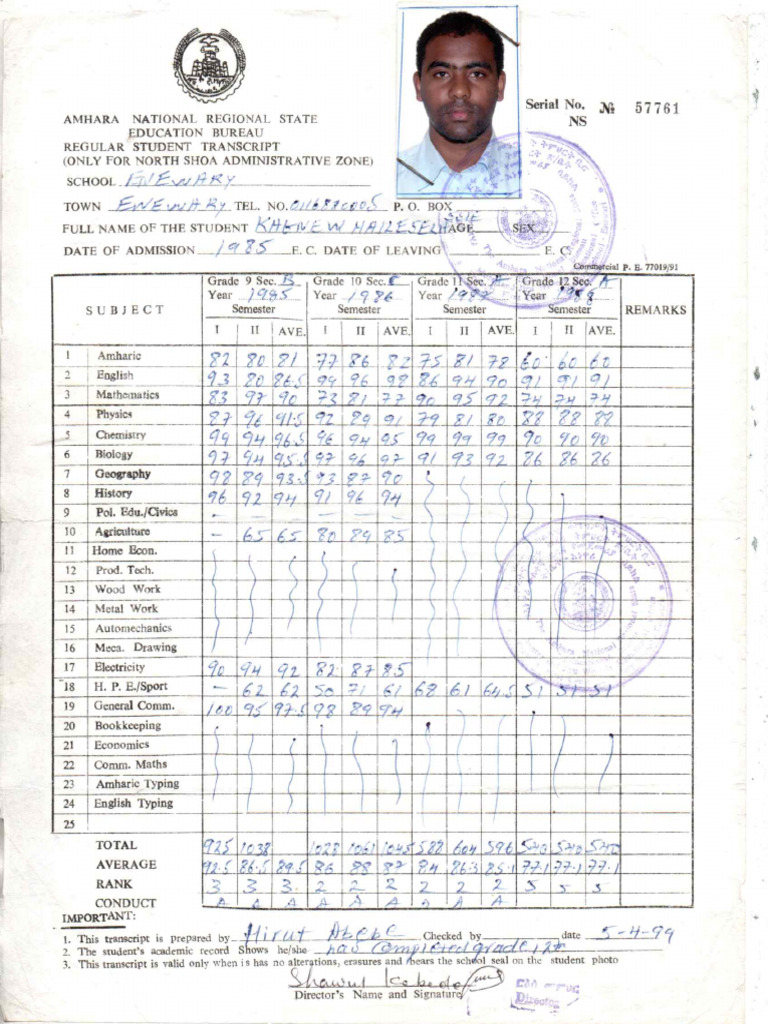 Serial No. № 57761
NS
AMHARA NATIONAL REGIONAL STATE
EDUCATION BUREAU
REGULAR STUDENT TRANSCRIPT
(ONLY FOR NORTH SHOA ADMINISTRATIVE ZONE)
SCHOOL ENEWARY
TOWN ENEWARY TEL. NO. 0116870005 P. O. BOX
FULL NAME OF THE STUDENT AGE SEX
DATE OF ADMISSION 1985 E. C. DATE OF LEAVING E. C.
Commercial P. E. 77019/91
SUBJECT Grade 9 Sec. B Grade 10 Sec. Grade 11 Sec. A Grade 12 Sec. A REMARKS
Year 1985 Year 1986 Year 1987 Year 1988
Semester Semester Semester Semester
I II AVE. I II AVE. I II AVE. I II AVE.
1 Amharic 82 80 81 77 86 82 75 81 78 60 60 60
2 English 93 80 86.5 99 96 98 86 94 90 91 91 91
3 Mathematics 83 97 90 73 81 77 90 95 92 74 74 74
4 Physics 87 96 91.5 92 89 91 79 81 80 88 88 88
5 Chemistry 99 94 96.5 96 94 95 99 99 99 90 90 90
6 Biology 97 94 95.5 97 96 97 91 93 92 86 86 86
7 Geography 98 89 93.5 93 87 90
8 History 96 92 94 91 96 94
9 Pol. Edu./Civics - - - - -
10 Agriculture - 65 65 80 89 85
11 Home Econ.
12 Prod. Tech.
13 Wood Work
14 Metal Work
15 Automechanics
16 Meca. Drawing
17 Electricity 90 94 92 82 87 85
18 H. P. E./Sport - 62 62 50 71 61 68 61 64.5 51 51 51
19 General Comm. 100 95 97.5 98 89 94
20 Bookkeeping
21 Economics
22 Comm. Maths
23 Amharic Typing
24 English Typing
25
TOTAL 925 1038 1028 1061 1045 588 604 596 540 540 540
AVERAGE 92.5 86.5 89.5 86 88 87 84 86.3 85.1 77.1 77.1 77.1
RANK 3 3 3 2 2 2 2 2 2 5 5 5
CONDUCT A A A A A A A A A A A A
IMPORTANT:
1. This transcript is prepared by Hirut Abebe Checked by date 5-4-99
2. The student's academic record Shows he/she has completed grade 12th
3. This transcript is valid only when is has no alterations, erasures and bears the school seal on the student photo
Shawul Kebede
Director's Name and Signature
Director